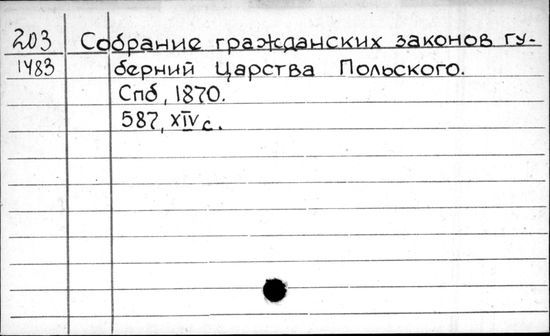 203 Собрание гражданских законов гу-
1483 берний Царства Польского.
Спб, 1870.
587, XIV с.